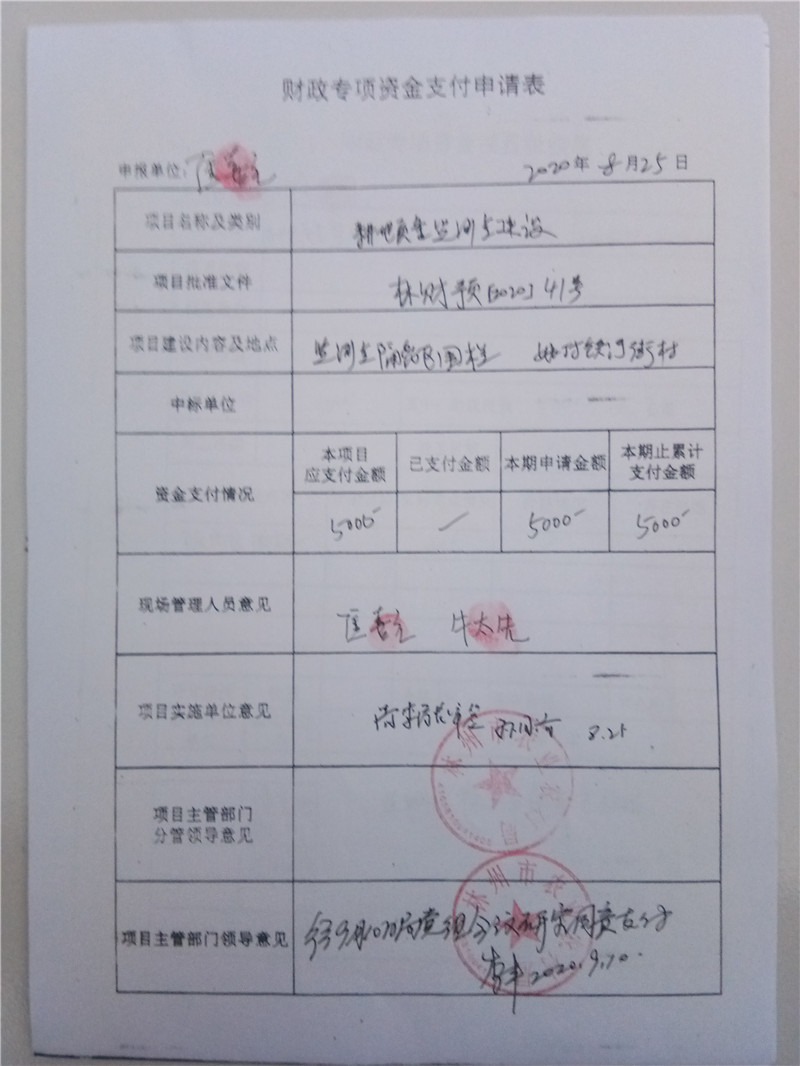 财政专项资金支付申请表
申报单位: 2020年8月25日
项目名称及类别 耕地质量监测点建设
项目批准文件 林财预[2020]41号
项目建设内容及地点 监测点隔离围栏 河街村
中标单位 —
资金支付情况
本项目应支付金额 已支付金额 本期申请金额 本期止累计支付金额
5000 — 5000 5000
现场管理人员意见 牛太先
项目实施单位意见 8.25
林州市农业农村局
项目主管部门
分管领导意见
项目主管部门领导意见 经9月10日局党组会议研究同意支付
2020.9.10.
林州市农